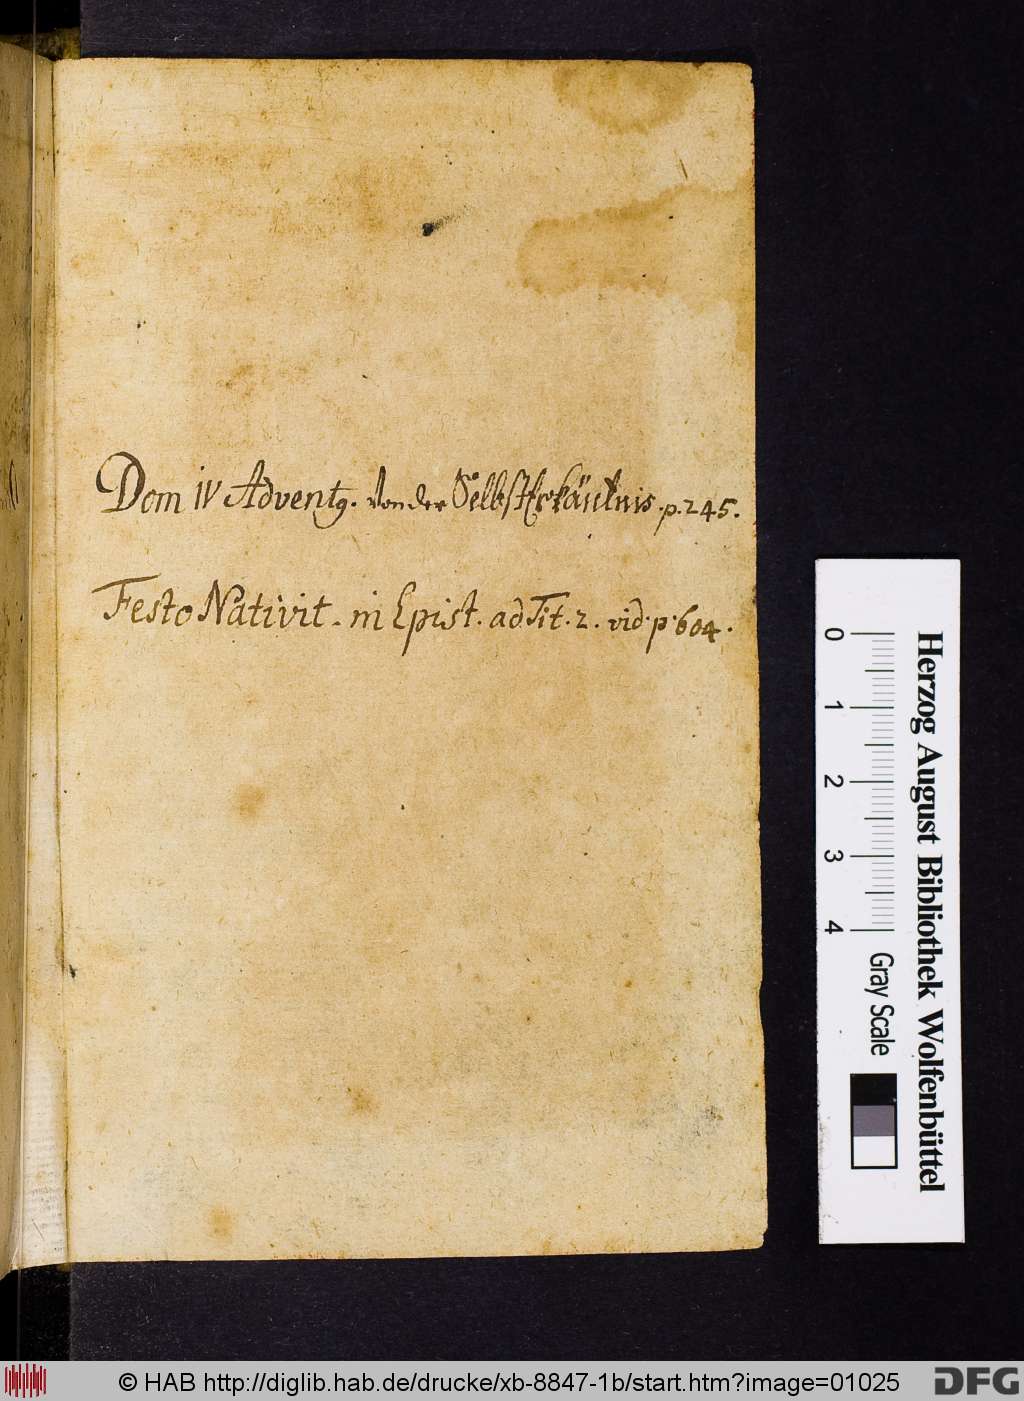 Dom IV Advent9. Von der SelbstErkäntnis. p. 245.
Festo Nativit. in Epist. ad Tit. 2. vid. p. 604.
Herzog August Bibliothek Wolfenbüttel
0 1 2 3 4
Gray Scale
© HAB http://diglib.hab.de/drucke/xb-8847-1b/start.htm?image=01025
DFG